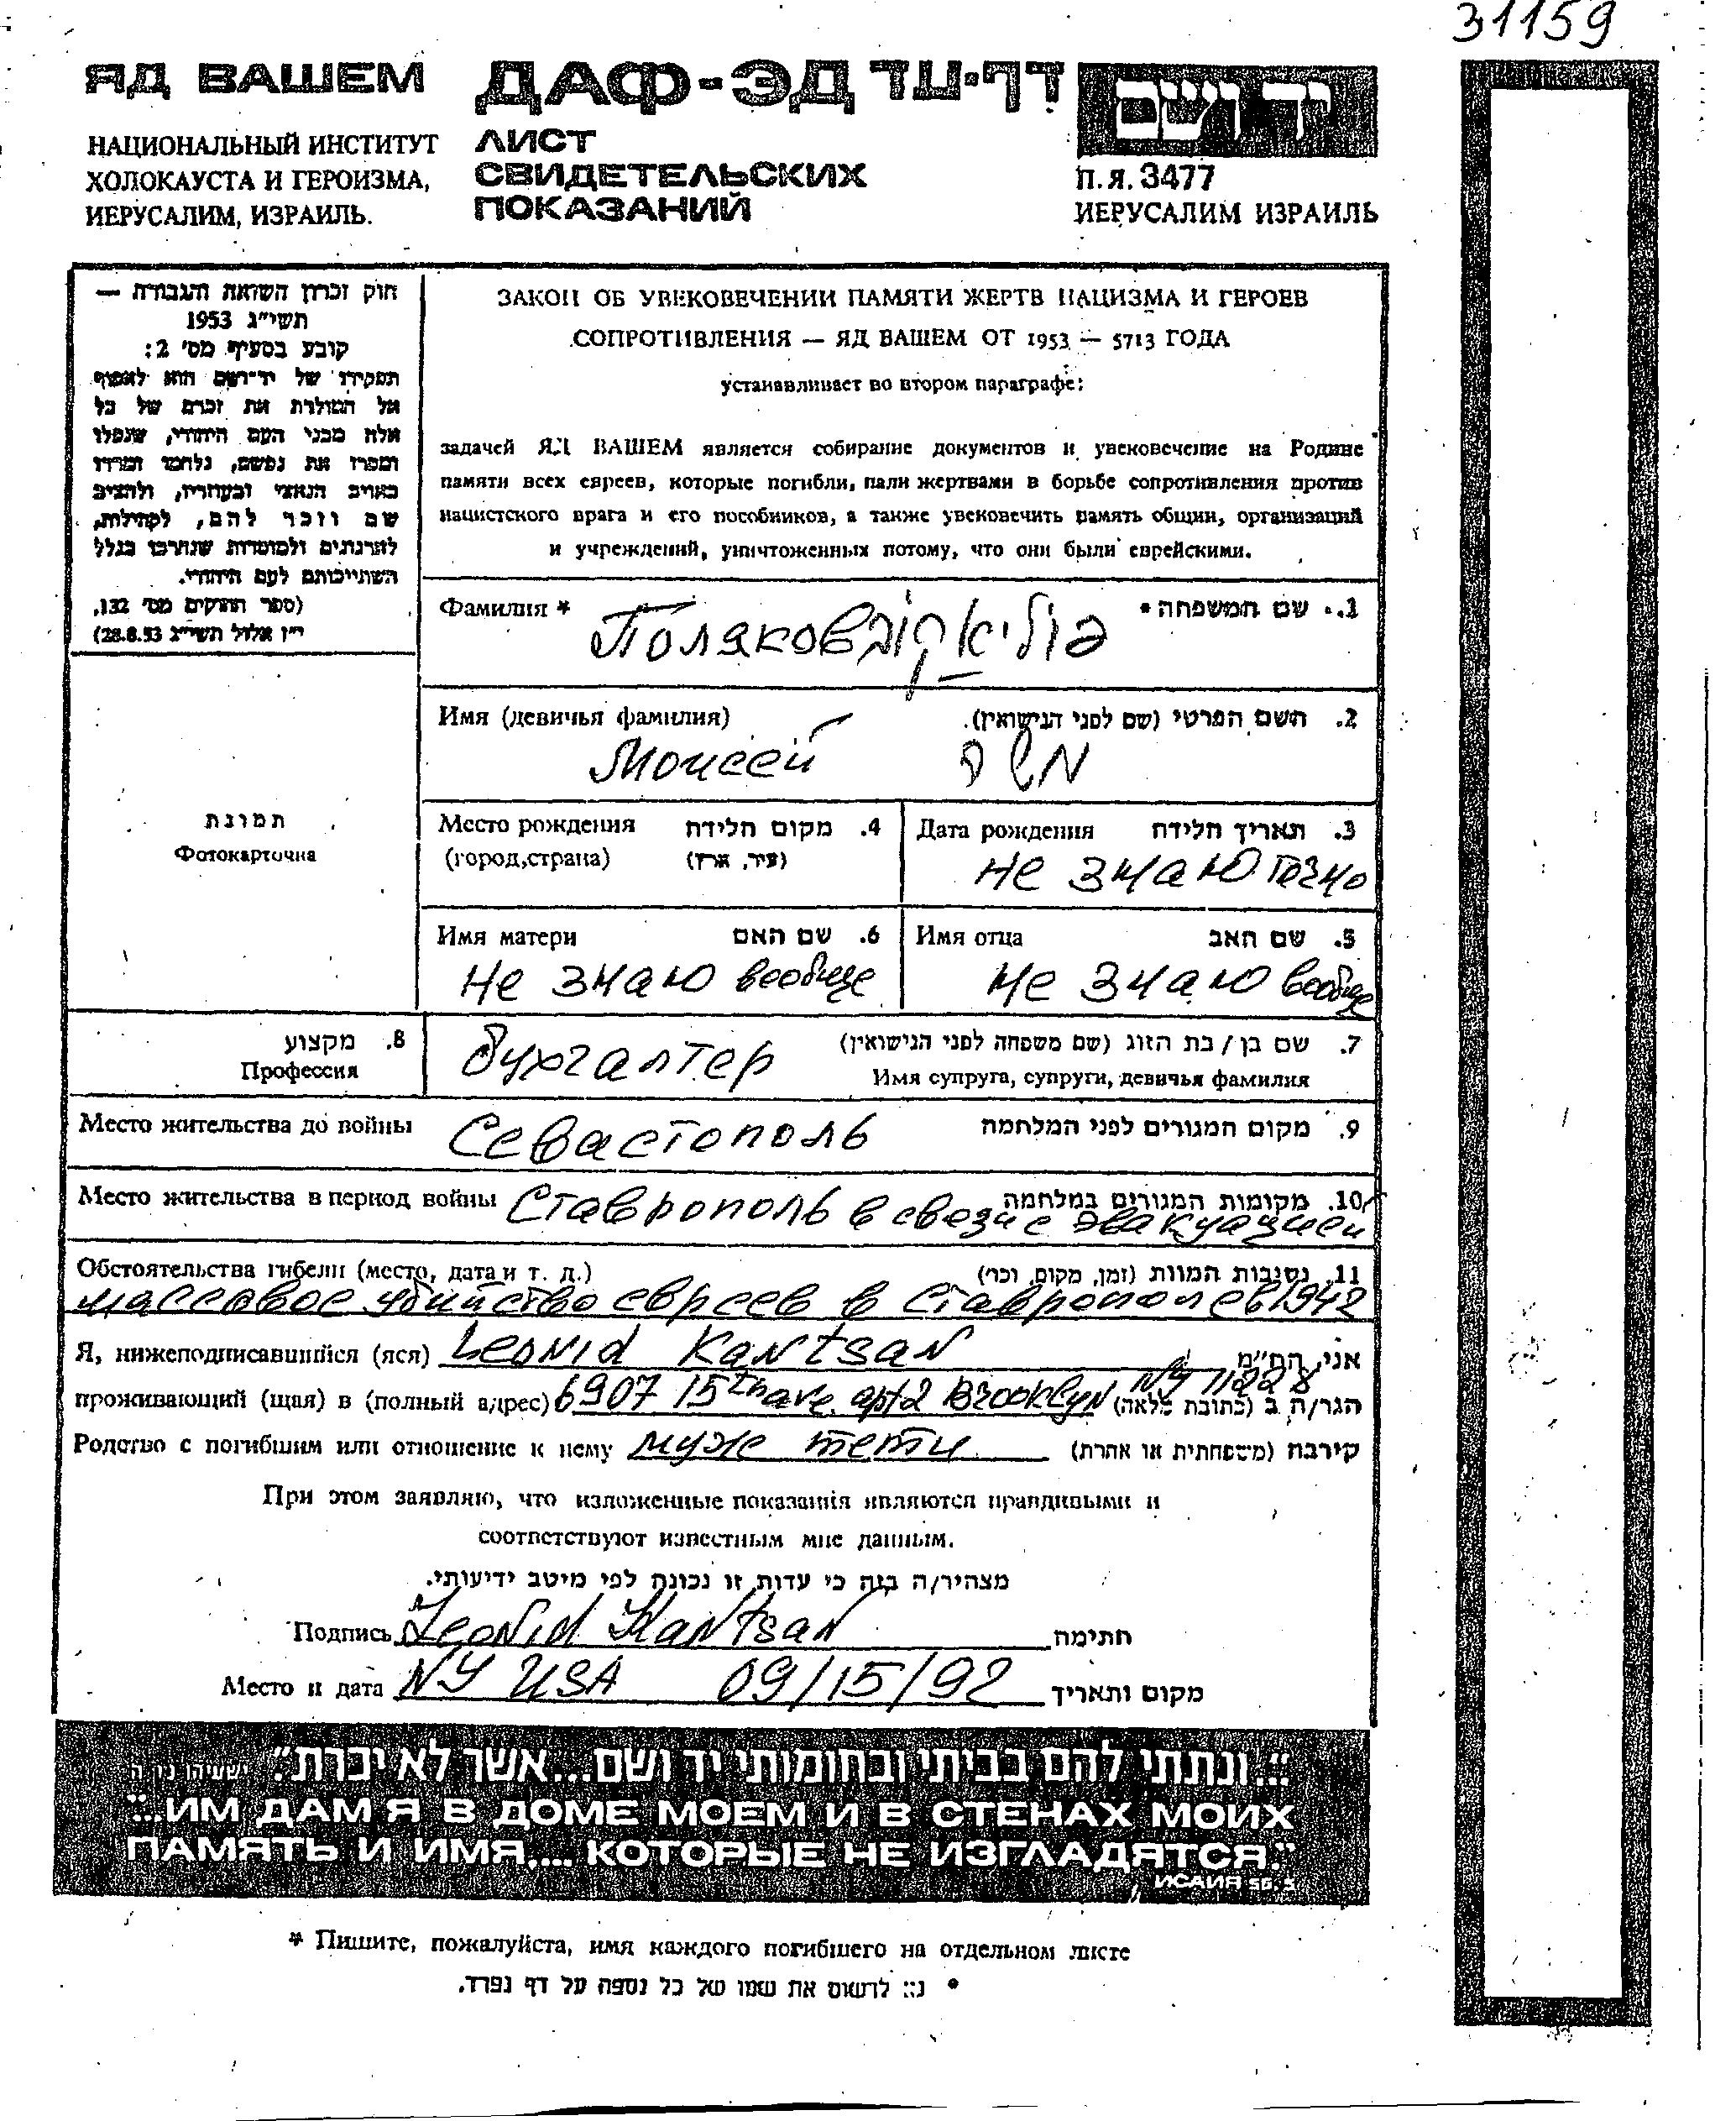 31159
ЯД ВАШЕМ ДАФ-ЭД דף-עד יד ושם
НАЦИОНАЛЬНЫЙ ИНСТИТУТ
ХОЛОКАУСТА И ГЕРОИЗМА,
ИЕРУСАЛИМ, ИЗРАИЛЬ.
ЛИСТ
СВИДЕТЕЛЬСКИХ
ПОКАЗАНИЙ
П.Я. 3477
ИЕРУСАЛИМ ИЗРАИЛЬ
חוק זכרון השואה והגבורה —
תשי"ג 1953
קובע בסעיף מס' 2:
תפקידו של יד־ושם הוא לאסוף
אל המולדת את זכרם של כל
אלה מבני העם היהודי, שנפלו
ומסרו את נפשם, נלחמו ומרדו
באויב הנאצי ובעוזריו, ולהציב
שם וזכר להם, לקהילות,
לארגונים ולמוסדות שנחרבו בגלל
השתייכותם לעם היהודי.
(ספר החוקים מס' 132,
י"ז אלול תשי"ג 28.8.53)
ЗАКОН ОБ УВЕКОВЕЧЕНИИ ПАМЯТИ ЖЕРТВ НАЦИЗМА И ГЕРОЕВ
СОПРОТИВЛЕНИЯ — ЯД ВАШЕМ ОТ 1953 — 5713 ГОДА
устанавливает во втором параграфе:
задачей ЯД ВАШЕМ является собирание документов и увековечение на Родине
памяти всех евреев, которые погибли, пали жертвами в борьбе сопротивления против
нацистского врага и его пособников, а также увековечить память общин, организаций
и учреждений, уничтоженных потому, что они были еврейскими.
Фамилия * 1. שם המשפחה *
Поляков פוליאקוב
Имя (девичья фамилия) 2. השם הפרטי (שם לפני הנישואין).
Моисей משה
תמונת
Фотокарточка
Место рождения 4. מקום הלידה
(город,страна) (עיר, ארץ)
Дата рождения 3. תאריך הלידה
не знаю точно
Имя матери 6. שם האם
Не знаю вообще
Имя отца 5. שם האב
Не знаю вообще
8. מקצוע
Профессия
бухгалтер
7. שם בן/בת הזוג (שם משפחה לפני הנישואין)
Имя супруга, супруги, девичья фамилия
Место жительства до войны Севастополь 9. מקום המגורים לפני המלחמה
Место жительства в период войны 10. מקומות המגורים במלחמה
Ставрополь в связи с эвакуацией
Обстоятельства гибели (место, дата и т. д.) 11. נסיבות המוות (זמן, מקום, וכו')
массовое убийство евреев в Ставрополе в 1942
Я, нижеподписавшийся (яся) Leonid Kantsan אני, הח"מ
проживающий (щая) в (полный адрес) 6907 15th ave. apt2 Brooklyn NY 11228 הגר/ה ב (כתובת מלאה)
Родство с погибшим или отношение к нему муже тети קירבה (משפחתית או אחרת)
При этом заявляю, что изложенные показания являются правдивыми и
соответствуют известным мне данным.
מצהיר/ה בזה כי עדות זו נכונה לפי מיטב ידיעותי.
Подпись Leonid Kantsan חתימה
Место и дата NY USA 09/15/92 מקום ותאריך
"...ונתתי להם בביתי ובחומותי יד ושם...אשר לא יכרת." ישעיהו נו, ה
"...ИМ ДАМ Я В ДОМЕ МОЕМ И В СТЕНАХ МОИХ
ПАМЯТЬ И ИМЯ,... КОТОРЫЕ НЕ ИЗГЛАДЯТСЯ."
ИСАИЯ 56. 5
* Пишите, пожалуйста, имя каждого погибшего на отдельном листе
* נא לרשום את שמו של כל נספה על דף נפרד.